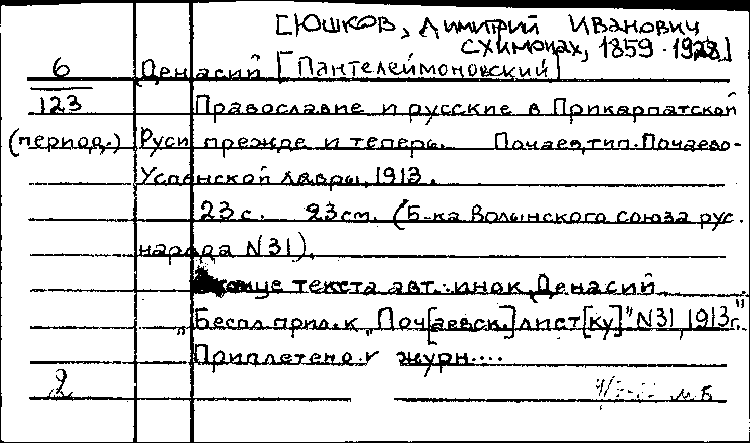 [Юшков, Димитрий Иванович
схимонах, 1859-1928]
6 Денасий [Пантелеймоновский]
123 Православие и русские в Прикарпатской
(период.) Руси прежде и теперь. Почаев, тип. Почаево-
Успенской лавры, 1913.
23 с. 23 см. (Б-ка Волынского союза рус.
народа N 31).
конце текста авт.: инок Денасий
„Беспл. прил. к „Поч[аевск.] лист[ку]" N31, 1913 г."
Приплетено к журн....
2 м Б